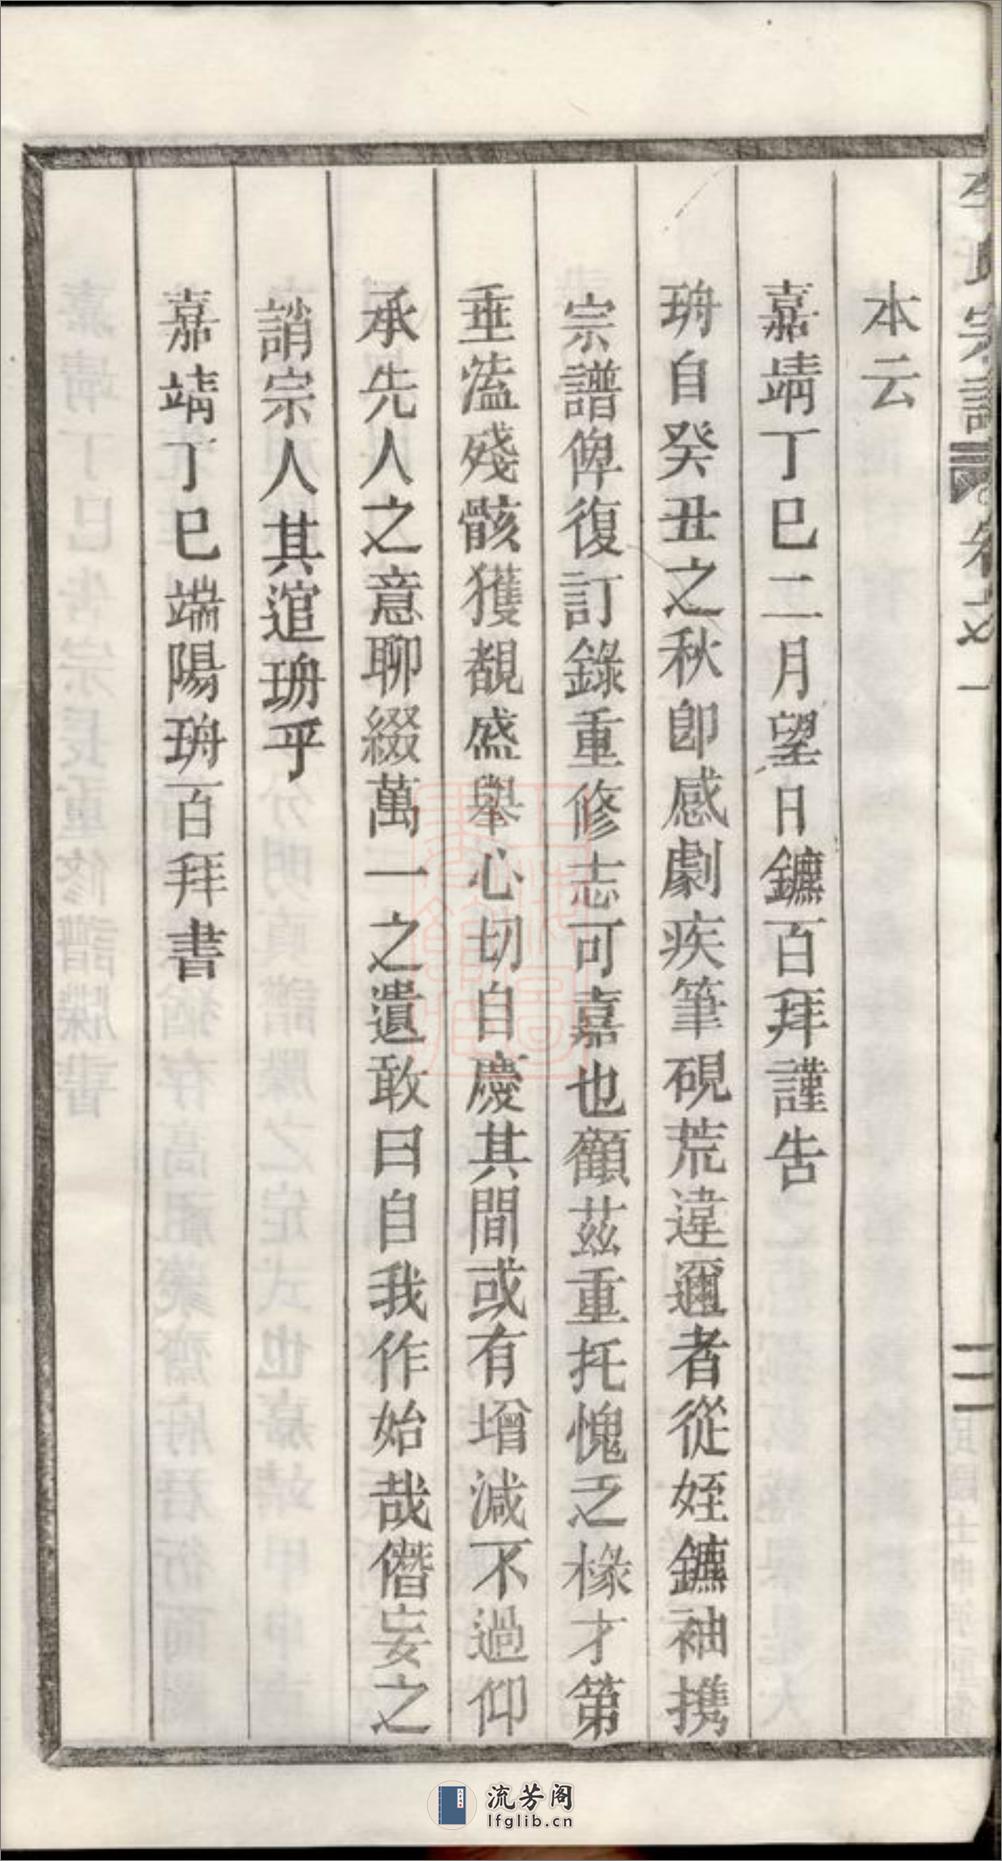 本云
嘉靖丁巳二月望日鑣百拜謹告
珘自癸丑之秋卽感劇疾筆硯荒違邇者從姪鑣袖携
宗譜俾復訂錄重修志可嘉也顧茲重托愧乏椽才第
垂溘殘骸獲覩盛舉心切自慶其間或有增減不過仰
承先人之意聊綴萬一之遺敢曰自我作始哉僭妄之
誚宗人其逭珘乎
嘉靖丁巳端陽珘百拜書
李氏宗譜
卷之一
二
流芳阁
lfglib.cn